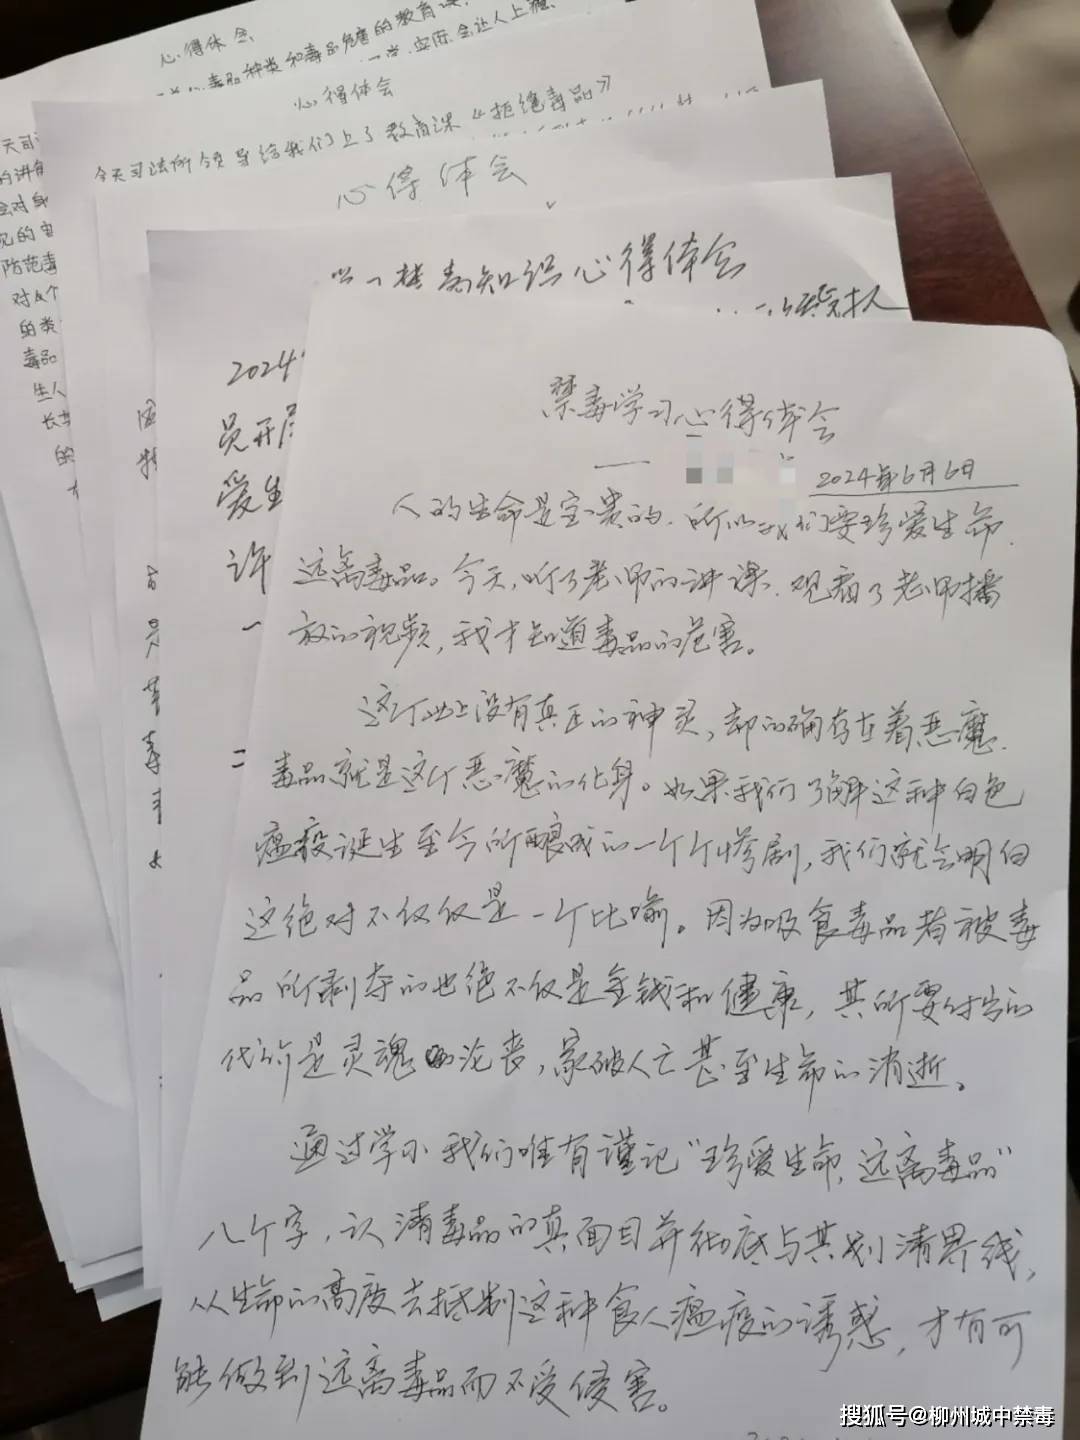 心得体会
毒品种类和毒品危害的教育课
心得体会
今天司法所领导给我们上了教育课《拒绝毒品》
心得体会
毒知识心得体会
2024
员开展
爱生
许
一
二
天司
的讲解
会对身
见的
防范毒
对
的类
毒品
生人
长
的
禁毒学习心得体会
2024年6月6日
人的生命是宝贵的,所以我们要珍爱生命,
远离毒品。今天,听了老师的讲课,观看了老师播
放的视频,我才知道毒品的危害。
这个世上没有真正的神灵,却的确存在着恶魔,
毒品就是这个恶魔的化身。如果我们了解这种白色
瘟疫诞生至今所酿成的一个个惨剧,我们就会明白
这绝对不仅仅是一个比喻。因为吸食毒品者被毒
品所剥夺的也绝不仅是金钱和健康,其所要付出的
代价是灵魂的沦丧,家破人亡甚至生命的消逝。
通过学习我们唯有谨记“珍爱生命,远离毒品”
八个字,认清毒品的真面目并彻底与其划清界线,
从生命的高度去抵制这种食人瘟疫的诱惑,才有可
能做到远离毒品而不受侵害。
搜狐号@柳州城中禁毒